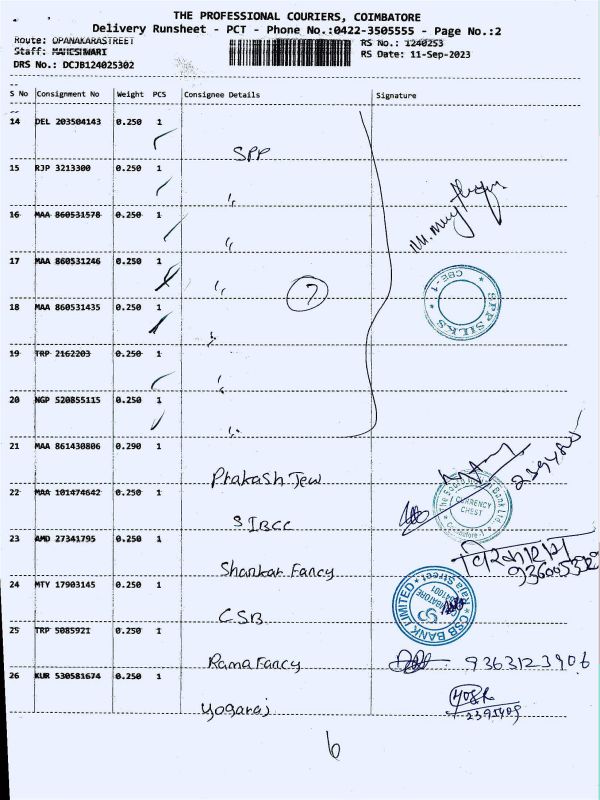 THE PROFESSIONAL COURIERS, COIMBATORE
Delivery Runsheet - PCT - Phone No.:0422-3505555 - Page No.:2
Route: OPANAKARASTREET RS No.: 1240253
Staff: MAHESHWARI RS Date: 11-Sep-2023
DRS No.: DCJB124025302
S No Consignment No Weight PCS Consignee Details Signature
14 DEL 203504143 0.250 1
SPP
15 RJP 3213300 0.250 1
"
16 MAA 860531578 0.250 1
"
17 MAA 860531246 0.250 1
" 7
18 MAA 860531435 0.250 1
"
SPP SILKS * CBE-1 *
19 TRP 2162203 0.250 1
"
20 NGP 520855115 0.250 1
"
21 MAA 861430806 0.290 1
Prakash Jew
22 MAA 101474642 0.250 1
CURRENCY CHEST
SIBCC
23 AMD 27341795 0.250 1
Shankar Fancy
24 MTY 17903145 0.250 1
CSB BANK LIMITED * Raja Street * COIMBATORE
CSB
25 TRP 5085921 0.250 1
Rama Fancy 9363123906
26 KUR 530581674 0.250 1
Yogaraj
6